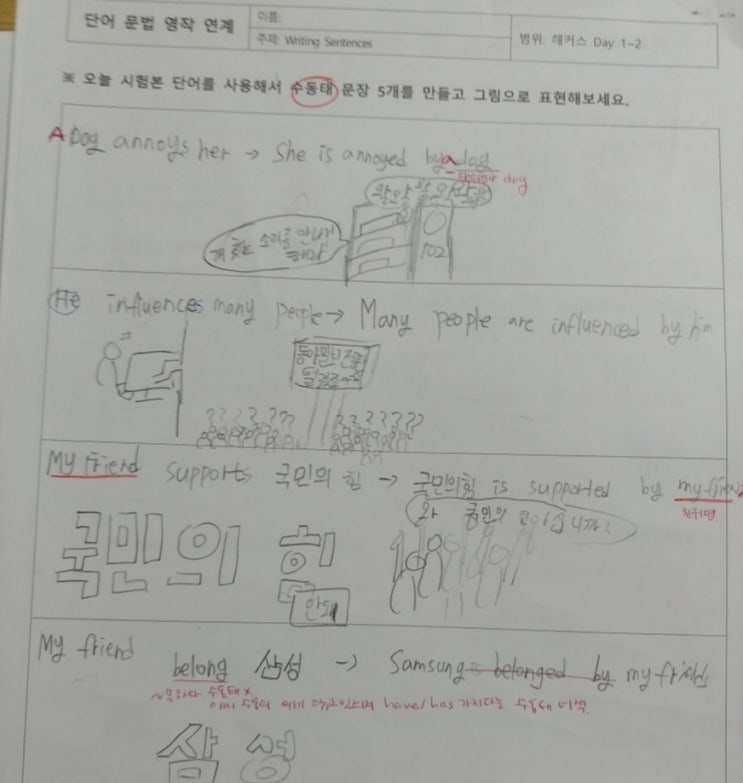 단어 문법 영작 연계
이름:
주제: Writing Sentences
범위: 해커스 Day 1-2
※ 오늘 시험본 단어를 사용해서 수동태 문장 5개를 만들고 그림으로 표현해보세요.
A Dog annoys her → She is annoyed by a dog
dog
왈왈
개 짖는 소리좀 안나게
하라
102
He influences many people → Many people are influenced by him
My friend supports 국민의 힘 → 국민의힘 is supported by my friend
와 국민의
국민의 힘
안돼
My friend
belong 삼성 → Samsung is belonged by my friend
~속하다. 수동태 x
이미 수동의 의미 have/has 가지다는 수동태 어색.
삼성